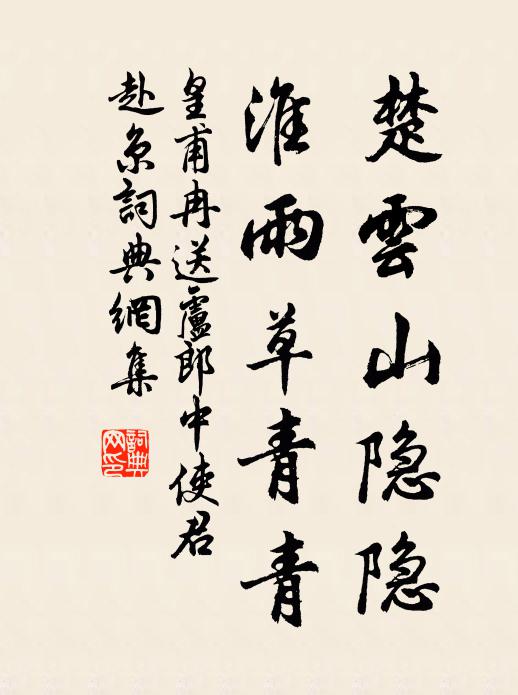 楚雲山隐隐
淮雨草青青
皇甫冉送盧郎中使君
赴京詞典網集
詞典
网印